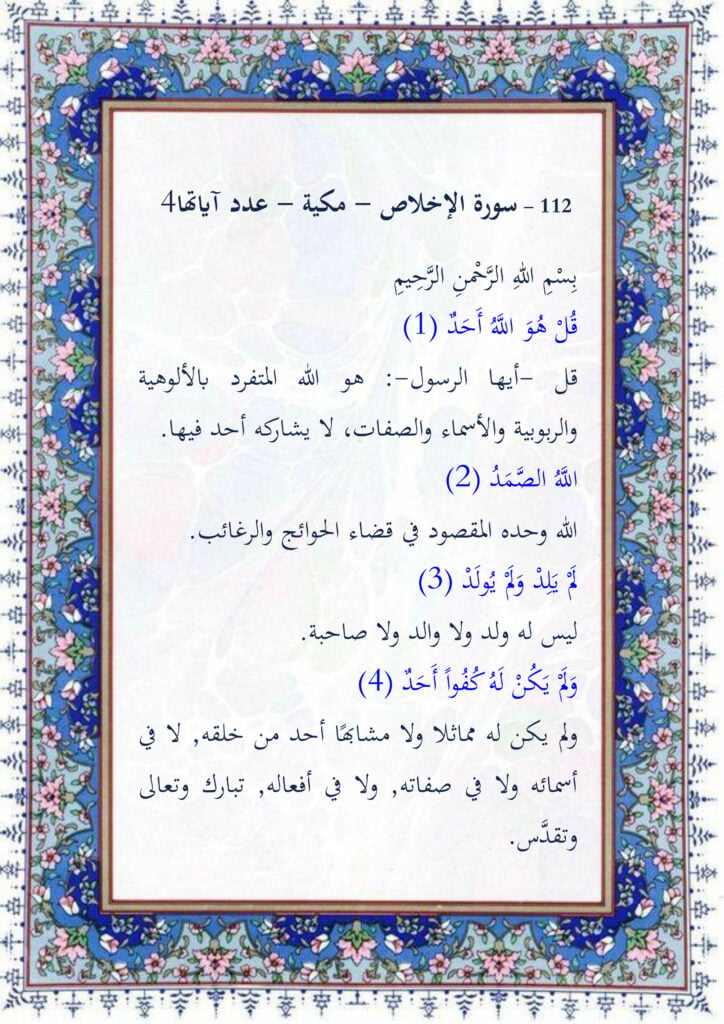 112 - سورة الإخلاص – مكية – عدد آياتها4
بِسْمِ اللهِ الرَّحْمنِ الرَّحِيمِ
قُلْ هُوَ اللَّهُ أَحَدٌ (1)
قل -أيها الرسول-: هو الله المتفرد بالألوهية
والربوبية والأسماء والصفات، لا يشاركه أحد فيها.
اللَّهُ الصَّمَدُ (2)
الله وحده المقصود في قضاء الحوائج والرغائب.
لَمْ يَلِدْ وَلَمْ يُولَدْ (3)
ليس له ولد ولا والد ولا صاحبة.
وَلَمْ يَكُنْ لَهُ كُفُواً أَحَدٌ (4)
ولم يكن له مماثلا ولا مشابهًا أحد من خلقه, لا في
أسمائه ولا في صفاته, ولا في أفعاله, تبارك وتعالى
وتقدَّس.